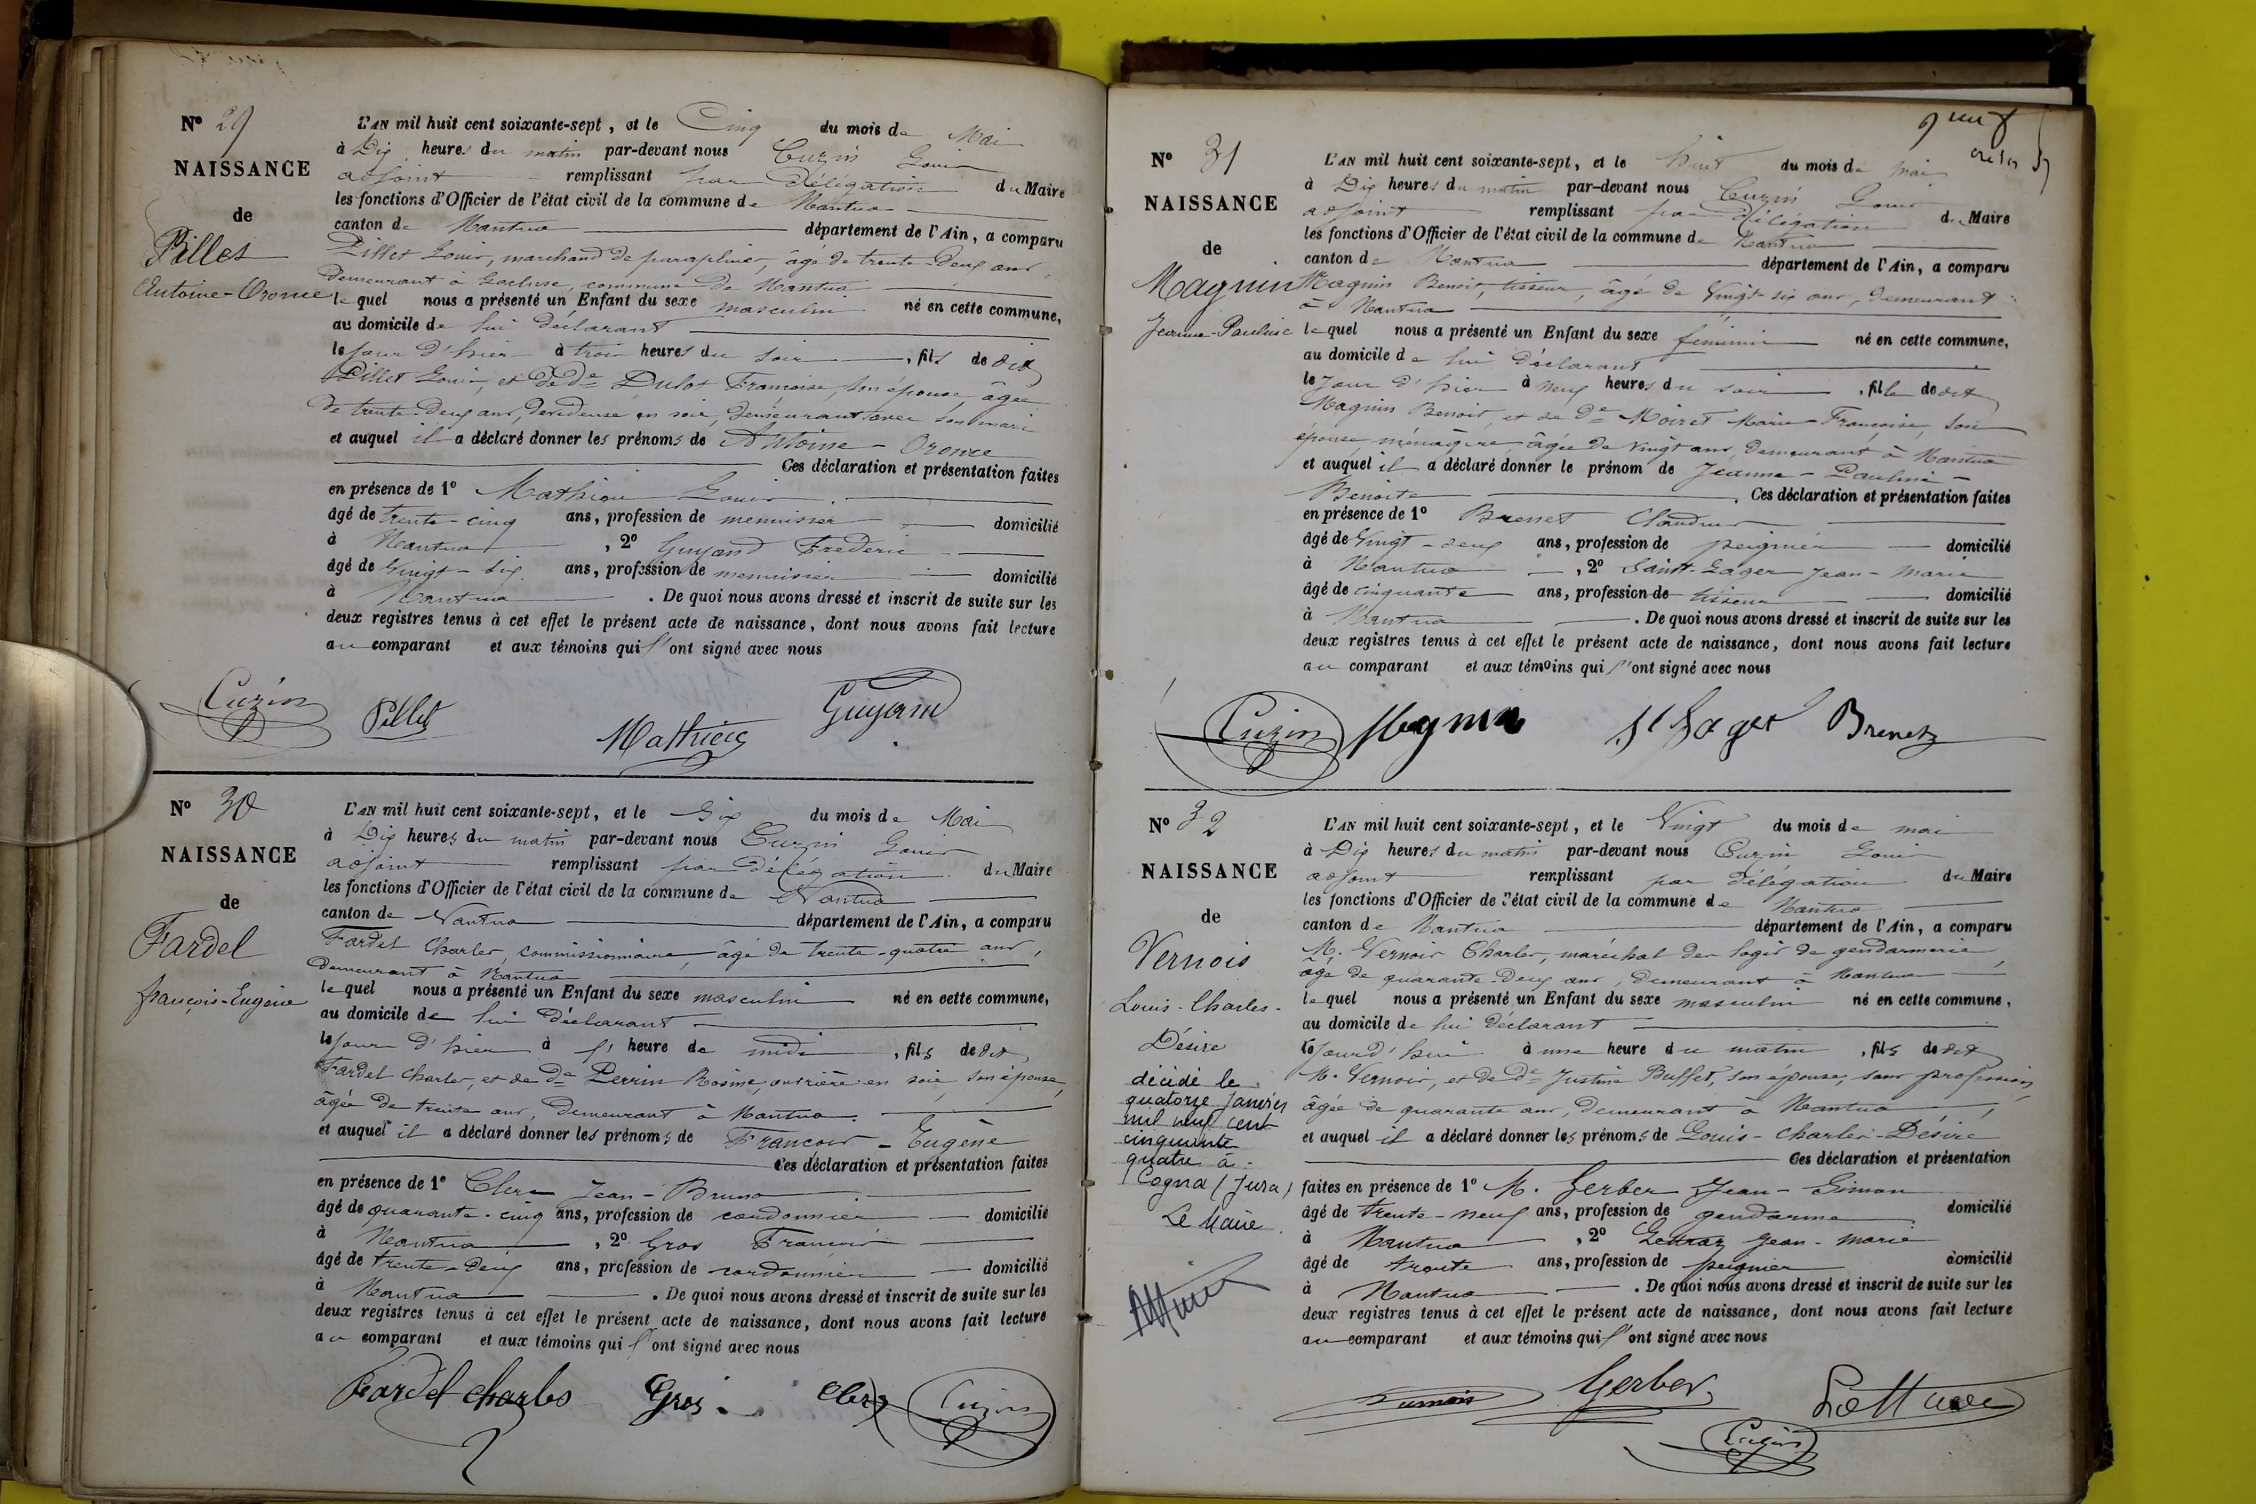 N° 29
NAISSANCE
de
Pillet
Antoine-Oronce
L'AN mil huit cent soixante-sept, et le Cinq du mois de Mai
à Dix heures du matin par-devant nous Cuzin Louis
adjoint remplissant par délégation du Maire
les fonctions d'Officier de l'état civil de la commune de Nantua
canton de Nantua département de l'Ain, a comparu
Pillet Louis, marchand de parapluies, âgé de trente-deux ans
demeurant à , commune de Nantua
lequel nous a présenté un Enfant du sexe masculin né en cette commune,
au domicile de lui déclarant
le jour d'hier à trois heures du soir, fils de dit
Pillet Louis, et de De Dulot Françoise, son épouse, âgée
de trente-deux ans, dévideuse en soie, demeurant avec son mari
et auquel il a déclaré donner les prénoms de Antoine-Oronce
Ces déclaration et présentation faites
en présence de 1° Mathieu Louis
âgé de trente-cinq ans, profession de menuisier domicilié
à Nantua, 2° Guyand Frédéric
âgé de Vingt-six ans, profession de menuisier domicilié
à Nantua. De quoi nous avons dressé et inscrit de suite sur les
deux registres tenus à cet effet le présent acte de naissance, dont nous avons fait lecture
au comparant et aux témoins qui l'ont signé avec nous
Cuzin Pillet Mathieu Guyand
N° 30
NAISSANCE
de
Fardel
françois-Eugène
L'AN mil huit cent soixante-sept, et le Six du mois de Mai
à Dix heures du matin par-devant nous Cuzin Louis
adjoint remplissant par délégation du Maire
les fonctions d'Officier de l'état civil de la commune de Nantua
canton de Nantua département de l'Ain, a comparu
Fardel Charles, commissionnaire, âgé de trente-quatre ans,
demeurant à Nantua
lequel nous a présenté un Enfant du sexe masculin né en cette commune,
au domicile de lui déclarant
le jour d'hier à l'heure de midi, fils de dit
Fardel Charles, et de De Perrin Rosine, ouvrière en soie, son épouse,
âgée de trente ans, demeurant à Nantua.
et auquel il a déclaré donner les prénoms de François-Eugène
Ces déclaration et présentation faites
en présence de 1° Clerc Jean-Bruno
âgé de quarante-cinq ans, profession de cordonnier domicilié
à Nantua, 2° Gros François
âgé de trente-deux ans, profession de cordonnier domicilié
à Nantua. De quoi nous avons dressé et inscrit de suite sur les
deux registres tenus à cet effet le présent acte de naissance, dont nous avons fait lecture
au comparant et aux témoins qui l'ont signé avec nous
Fardel charles Gros Clerc Cuzin
N° 31
NAISSANCE
de
Magnin
Jeanne-Pauline
L'AN mil huit cent soixante-sept, et le huit du mois de mai
à Dix heures du matin par-devant nous Cuzin Louis
adjoint remplissant par délégation du Maire
les fonctions d'Officier de l'état civil de la commune de Nantua
canton de Nantua département de l'Ain, a comparu
Magnin Benoit, tisseur, âgé de Vingt-six ans, demeurant
à Nantua
lequel nous a présenté un Enfant du sexe féminin né en cette commune,
au domicile de lui déclarant
le jour d'hier à neuf heures du soir, fille de dit
Magnin Benoit, et de De Moiret Marie-Françoise, son
épouse ménagère, âgée de vingt ans, demeurant à Nantua
et auquel il a déclaré donner le prénom de Jeanne-Pauline-
Benoite. Ces déclaration et présentation faites
en présence de 1° Brenet Claudius
âgé de Vingt-deux ans, profession de peignier domicilié
à Nantua, 2° Saint-Lager Jean-Marie
âgé de cinquante ans, profession de tisseur domicilié
à Nantua. De quoi nous avons dressé et inscrit de suite sur les
deux registres tenus à cet effet le présent acte de naissance, dont nous avons fait lecture
au comparant et aux témoins qui l'ont signé avec nous
Cuzin Magnin St Lager Brenet
N° 32
NAISSANCE
de
Vernois
Louis-Charles-
Désiré
décédé le
quatorze janvier
mil neuf cent
cinquante
quatre à
Cogna (Jura)
Le Maire
L'AN mil huit cent soixante-sept, et le Vingt du mois de mai
à Dix heures du matin par-devant nous Cuzin Louis
adjoint remplissant par délégation du Maire
les fonctions d'Officier de l'état civil de la commune de Nantua
canton de Nantua département de l'Ain, a comparu
M. Vernois Charles, maréchal des logis de gendarmerie,
âgé de quarante-deux ans, demeurant à Nantua
lequel nous a présenté un Enfant du sexe masculin né en cette commune,
au domicile de lui déclarant
le jourd'hui à une heure du matin, fils de dit
M. Vernois, et de De Justine Buffet, son épouse, sans profession,
âgée de quarante ans, demeurant à Nantua
et auquel il a déclaré donner les prénoms de Louis-Charles-Désiré
Ces déclaration et présentation
faites en présence de 1° M. Gerber Jean-Simon
âgé de trente-neuf ans, profession de gendarme domicilié
à Nantua, 2° Jean-Marie
âgé de trente ans, profession de peignier domicilié
à Nantua. De quoi nous avons dressé et inscrit de suite sur les
deux registres tenus à cet effet le présent acte de naissance, dont nous avons fait lecture
au comparant et aux témoins qui l'ont signé avec nous
Vernois Gerber
Cuzin